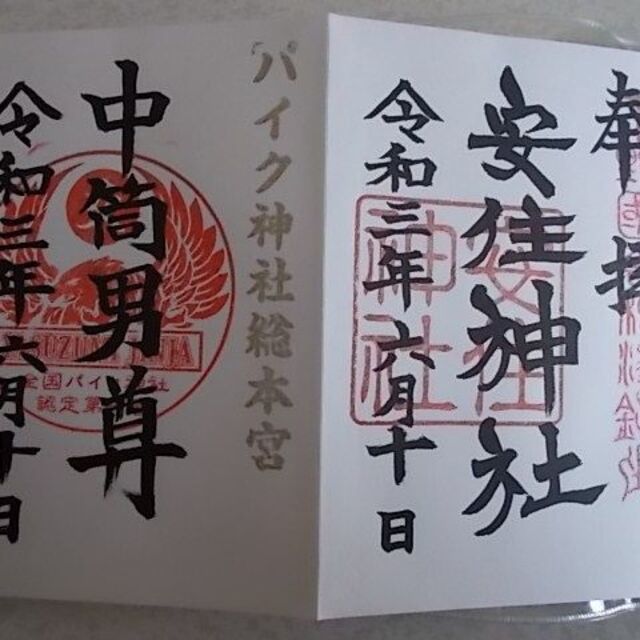 奉拝
安住神社
令和三年六月十日
安住神社
バイク神社総本宮
中筒男尊
令和三年六月十日
全国バイク
認定第